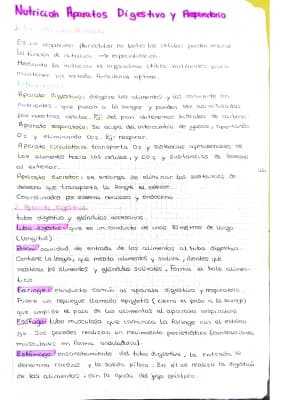 Nutrición Aparatos Digestivo y Respiratorio
En un organismo pluricelular no todas las células pueden realizar
la función de nutrición → especialización.
Mediante la nutrición el organismo obtiene nutrientes para
mantener un estado funcional óptimo.
Aparato digestivo: digiere los alimentos y los convierte en
nutrientes, que pasan a la sangre y pueden ser
por nuestras células. Ej: del pan obtenemos hidratos de carbono.
Aparato respiratorio: Se ocupa del intercambio de gases, aportando
O2 y eliminando CO2. Ej: respirar.
Aparato circulatorio: transporta O2 y sustancias aprovechables de
los alimentos hacia las células, y CO2 y sustancias de desecho
al exterior.
Aparato Excretor: se encarga de eliminar las sustancias de
desecho que transporta la sangre al exterior.
Coordinados por sistema nervioso y endocrino.
2. Aparato Digestivo
tubo digestivo y glándulas accesorias.
tubo digestivo: que es un conducto de unos 10 metros de largo
(longitud).
Boca: cavidad de entrada de los alimentos al tubo digestivo.
Contiene la lengua, que mezcla alimentos y saliva, dientes que
mastican los alimentos y glándulas salivales. Forma el bolo alimen-
ticio.
Faringe: conducto común al aparato digestivo y respiratorio.
Posee un repliegue llamado epiglotis (cierra el paso a la laringe)
que impide el paso de los alimentos al aparato respiratorio
Esófago: tubo musculoso que comunica la faringe con el estóma-
go. Sus paredes realizan un movimiento peristáltico (contracciones
musculares en forma ondulada)
Estómago: ensanchamiento del tubo digestivo, la entrada se
denomina cardias y la salida píloro. En él se realiza la digestión
de los alimentos, con la ayuda del jugo gástrico.